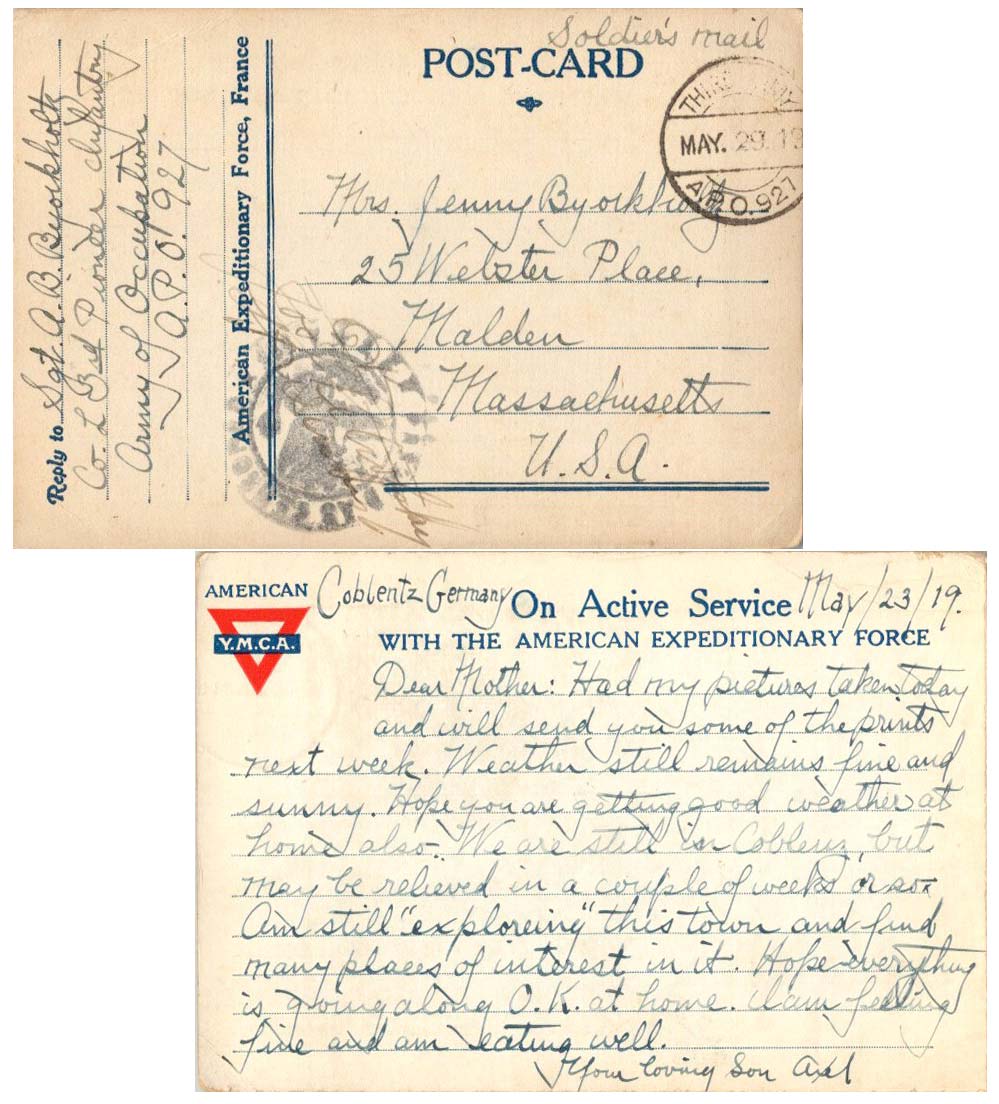 Soldier's mail
POST-CARD
THIRD ARMY
MAY. 29. 19
A.P.O. 927
Mrs. Jenny Byorkholtz
25 Webster Place,
Malden
Massachusetts
U.S.A.
American Expeditionary Force, France
Reply to Sgt. A.B. Byorkholtz
Co. L 3rd Pioneer Infantry
Army of Occupation
A.P.O. 927
AMERICAN
Y.M.C.A.
Coblentz Germany On Active Service May/23/19.
WITH THE AMERICAN EXPEDITIONARY FORCE
Dear Mother: Had my pictures taken today
and will send you some of the prints
next week. Weather still remains fine and
sunny. Hope you are getting good weather at
home also. We are still in Coblenz, but
may be relieved in a couple of weeks or so.
Am still "exploreing" this town and find
many places of interest in it. Hope everything
is going along O.K. at home. I am feeling
fine and am eating well.
Your loving Son Axel